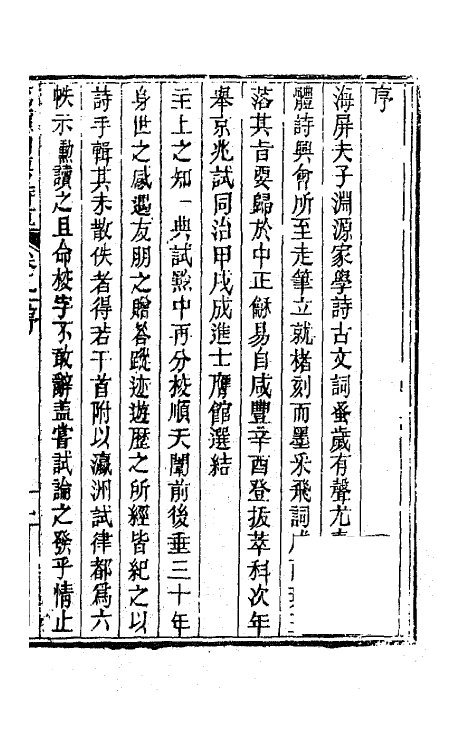 序
海屏夫子淵源家學詩古文詞蚤歲有聲尤
體詩興會所至走筆立就楮刻而墨采飛詞
落其旨要歸於中正穌易自咸豐辛酉登拔萃科次年
舉京兆試同治甲戌成進士膺館選結
主上之知一典試黔中再分校順天闈前後垂三十年
身世之感遇友朋之贈答蹤迹遊歷之所經皆紀之以
詩手輯其未散佚者得若干首附以瀛洲試律都爲六
帙示勳讀之且命校字不敢辭蓋嘗試論之發乎情止